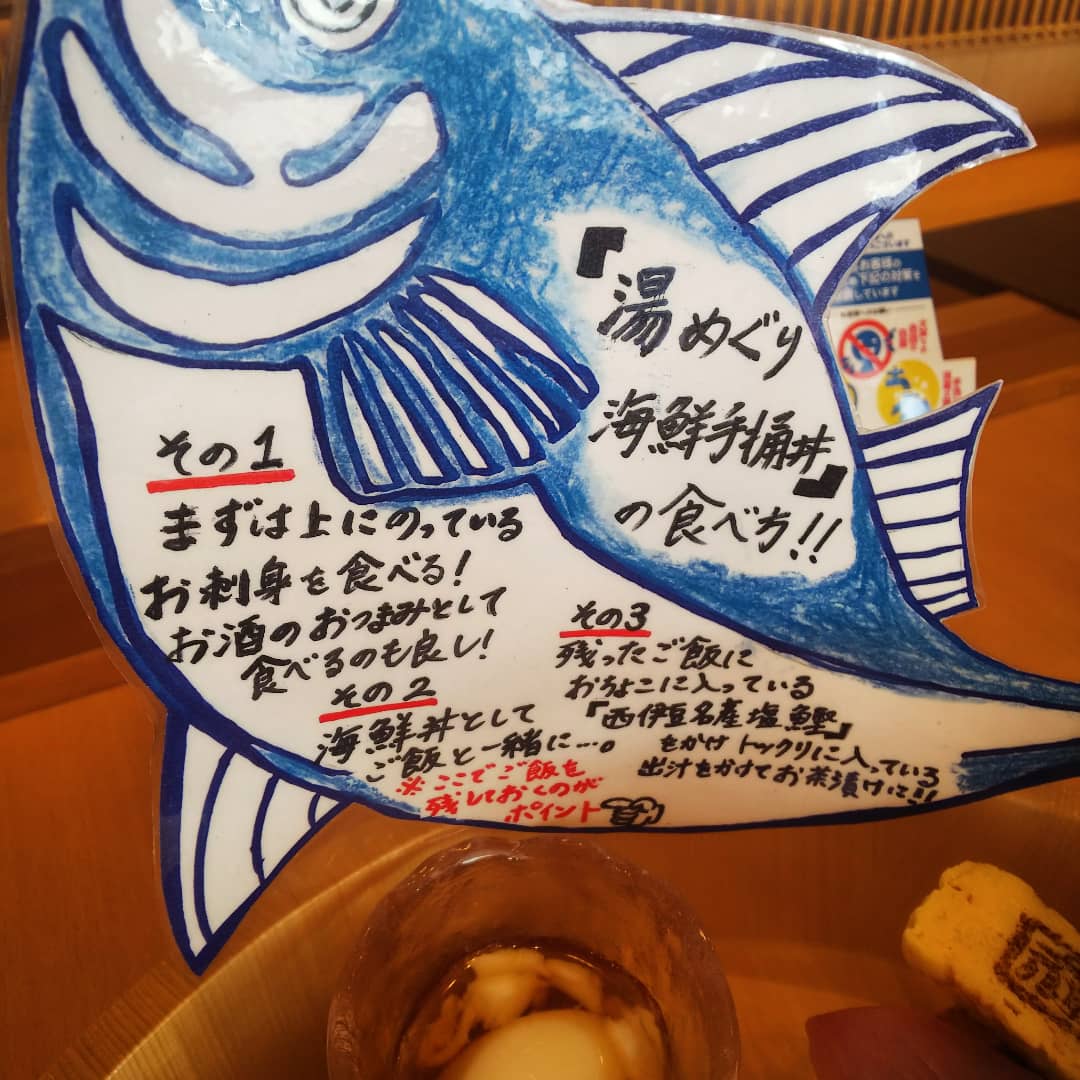 『湯めぐり
海鮮手桶丼』
の食べ方!!
その1
まずは上にのっている
お刺身を食べる!
お酒のおつまみとして
食べるのも良し!
その2
海鮮丼として
ご飯と一緒に…。
※ここでご飯を
残しておくのが
ポイント
その3
残ったご飯に
おちょこに入っている
『西伊豆名産塩鰹』
をかけトックリに入っている
出汁をかけてお茶漬けに!!
お客様の
下記の対策を
しています